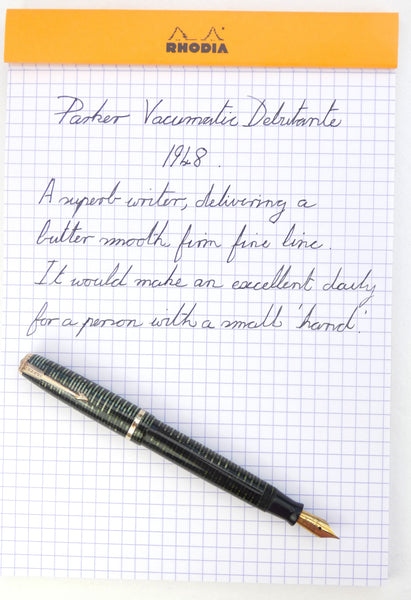 RHODIA
Parker Vacumatic Debutante
1948.
A superb writer, delivering a
butter smooth firm fine line.
It would make an excellent daily
for a person with a small 'hand'.